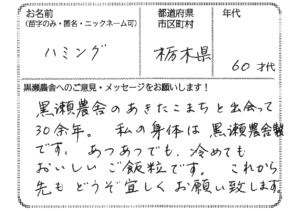 お名前
(苗字のみ・匿名・ニックネーム可)
都道府県
市区町村
年代
ハミング
栃木県
60才代
黒瀬農舎へのご意見・メッセージをお願いします!
黒瀬農舎のあきたこまちと出会って
30余年。私の身体は黒瀬農舎製
です。あつあつでも、冷めても
おいしいご飯粒です。これから
先もどうぞ宜しくお願い致します。